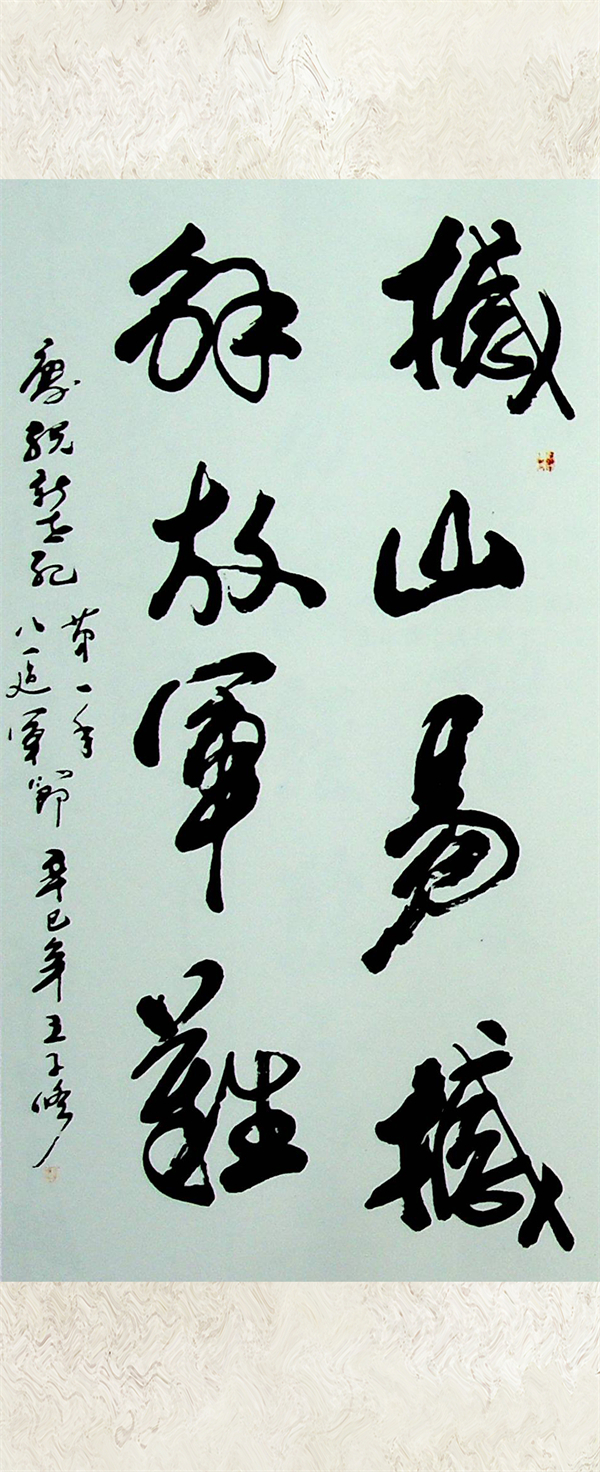 撼山易撼
解放军難
慶祝新世紀
第一年
八一建军節
辛巳年王子修